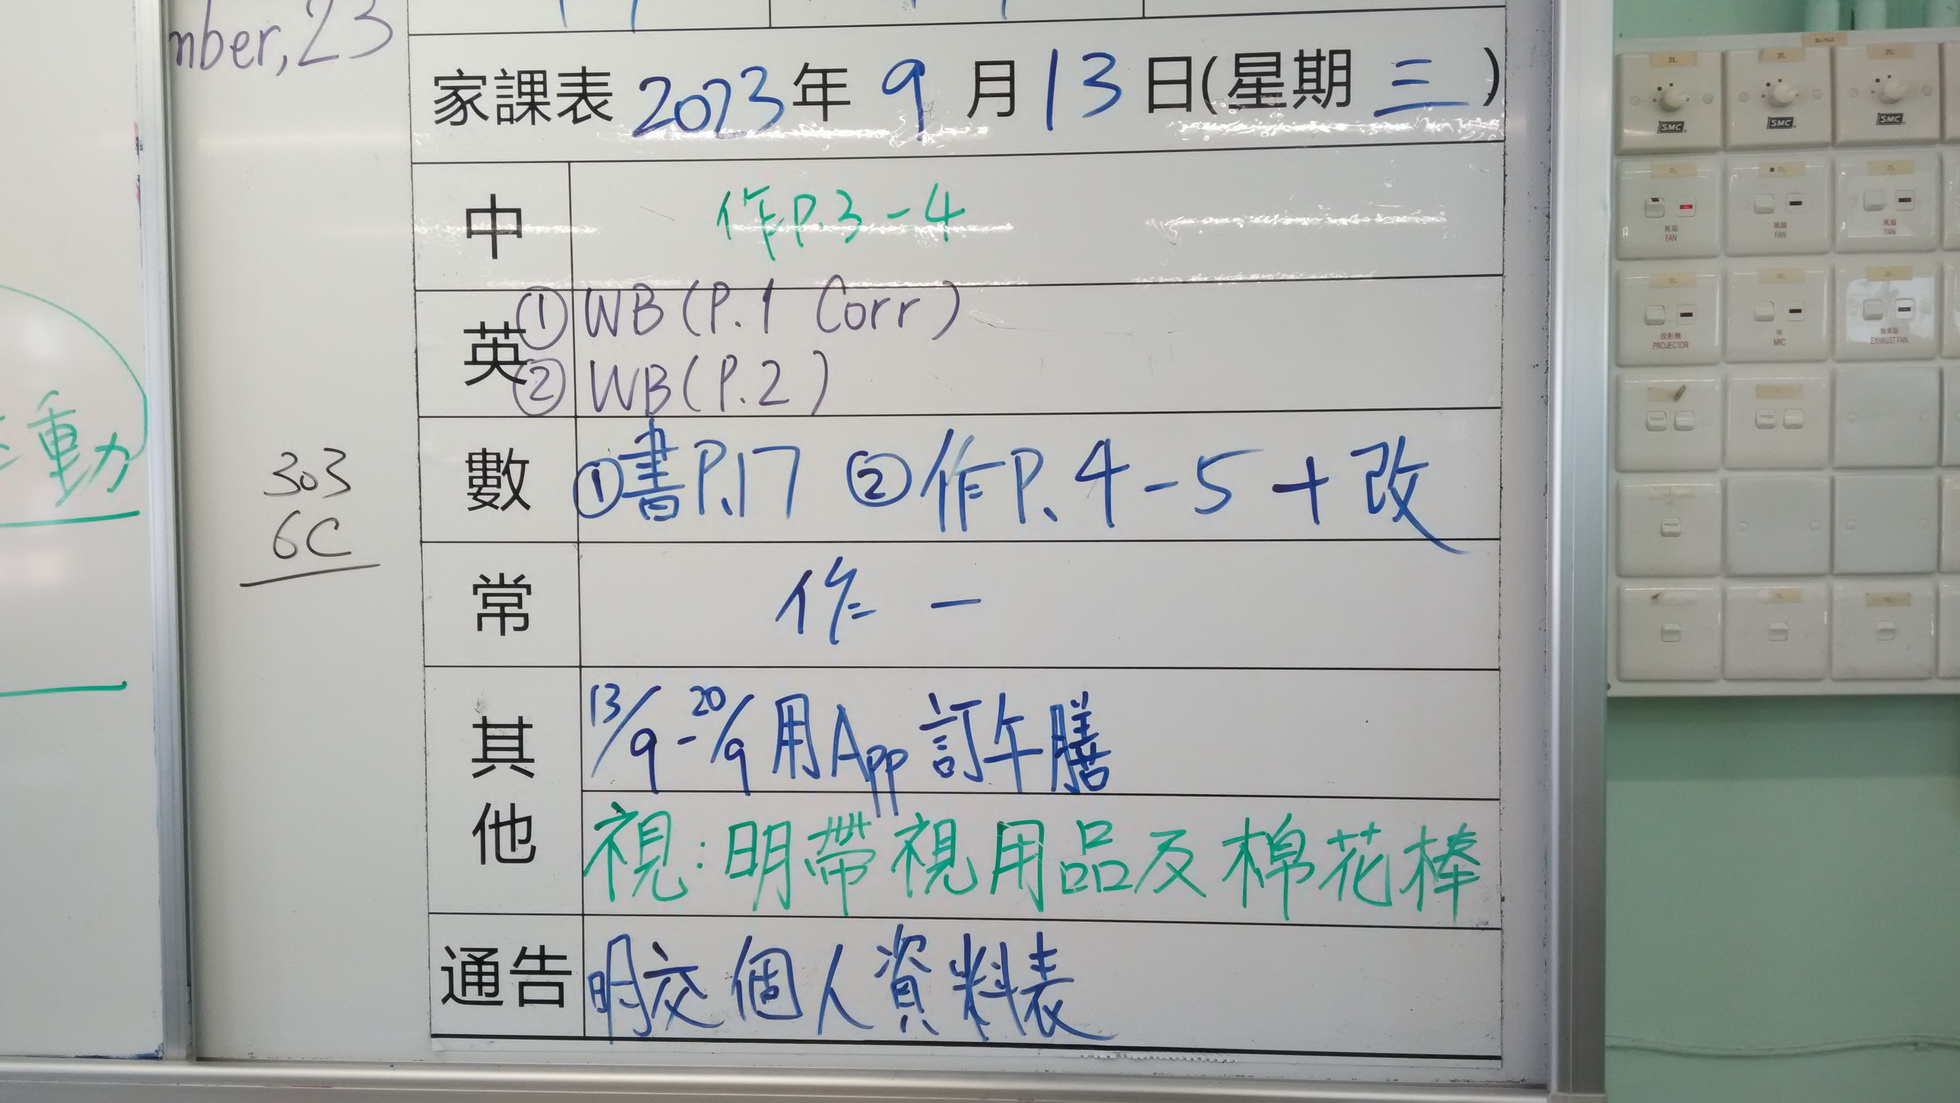 mber, 23
家課表 2023年 9月 13日(星期三)
中 作P.3-4
英 ① WB (P.1 Corr)
② WB (P.2)
動
303
6C
數 ①書P.17 ②作P.4-5+改
常 作一
其他 13/9-20/9 用App訂午膳
視:明帶視用品及棉花棒
通告 明交個人資料表
2L 2L 2L
SMC SMC SMC
FAN FAN FAN
PROJECTOR MIC EXHAUST FAN